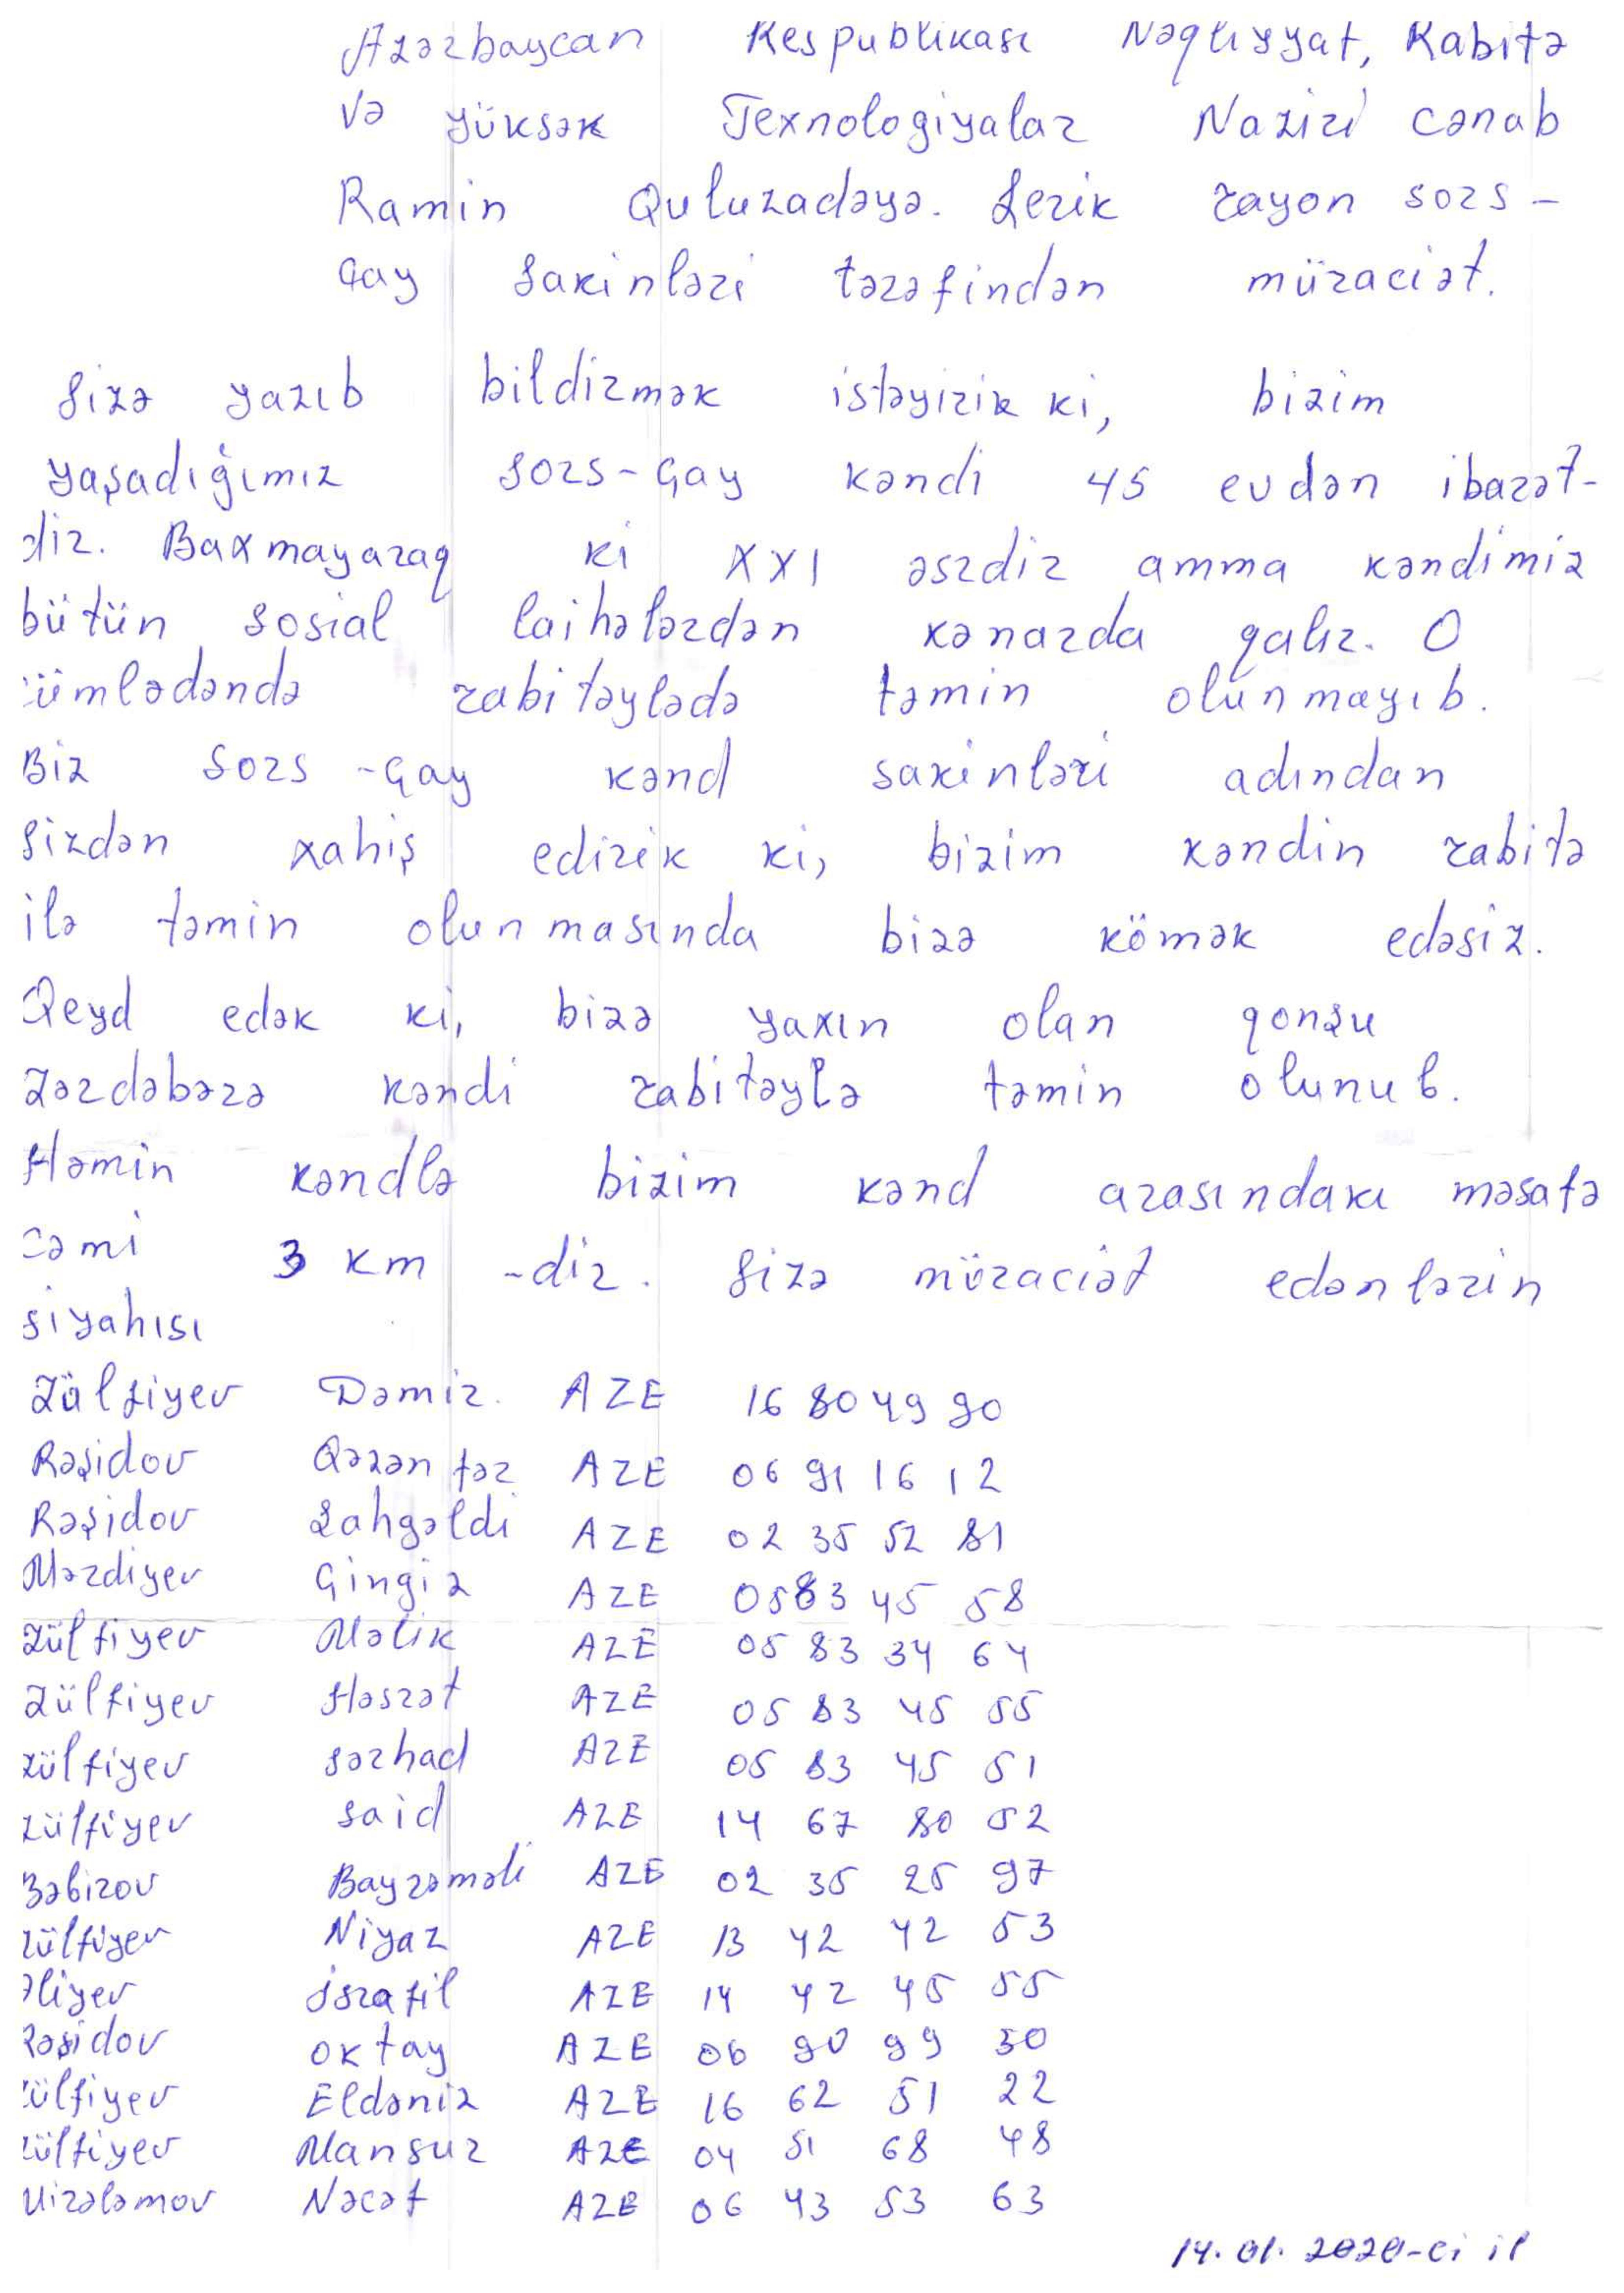 Azərbaycan Respublikası Nəqliyyat, Rabitə
və yüksək Texnologiyalar Naziri cənab
Ramin Quluzadəyə. Lerik rayon Sors-
Çay Sakinləri tərəfindən müraciət.
Sizə yazıb bildirmək istəyirik ki, bizim
yaşadığımız Sors-Çay kəndi 45 evdən ibarət-
dir. Baxmayaraq ki XXI əsrdir amma kəndimiz
bütün sosial laihələrdən kənarda qalır. O
cümlədəndə rabitəylədə təmin olunmayıb.
Biz Sors-Çay kənd sakinləri adından
Sizdən xahiş edirik ki, bizim kəndin rabitə
ilə təmin olunmasında bizə kömək edəsiz.
Qeyd edək ki, bizə yaxın olan qonşu
Zərdəbərə kəndi rabitəylə təmin olunub.
Həmin kəndlə bizim kənd arasındakı məsafə
cəmi 3 km -dir. Sizə müraciət edənlərin
siyahısı
Zülfiyev Dəmir. AZE 16 80 49 90
Rəşidov Qərənfər AZE 06 91 16 12
Rəşidov Şahgəldi AZE 02 35 52 81
Mərdiyev Çingiz AZE 05 83 45 58
Zülfiyev Məlik AZE 05 83 34 64
Zülfiyev Həsrət AZE 05 83 45 55
Zülfiyev Sərhad AZE 05 83 45 51
Zülfiyev Said AZE 14 67 80 52
Bəbirov Bayrəməli AZE 02 35 25 97
Zülfiyev Niyaz AZE 13 42 42 53
Əliyev İsrafil AZE 14 42 45 55
Rəşidov Oktay AZE 06 90 99 30
Zülfiyev Eldəniz AZE 16 62 51 22
Zülfiyev Mansur AZE 04 51 68 48
Mirələmov Nəcəf AZE 06 43 53 63
14.01.2020-ci il